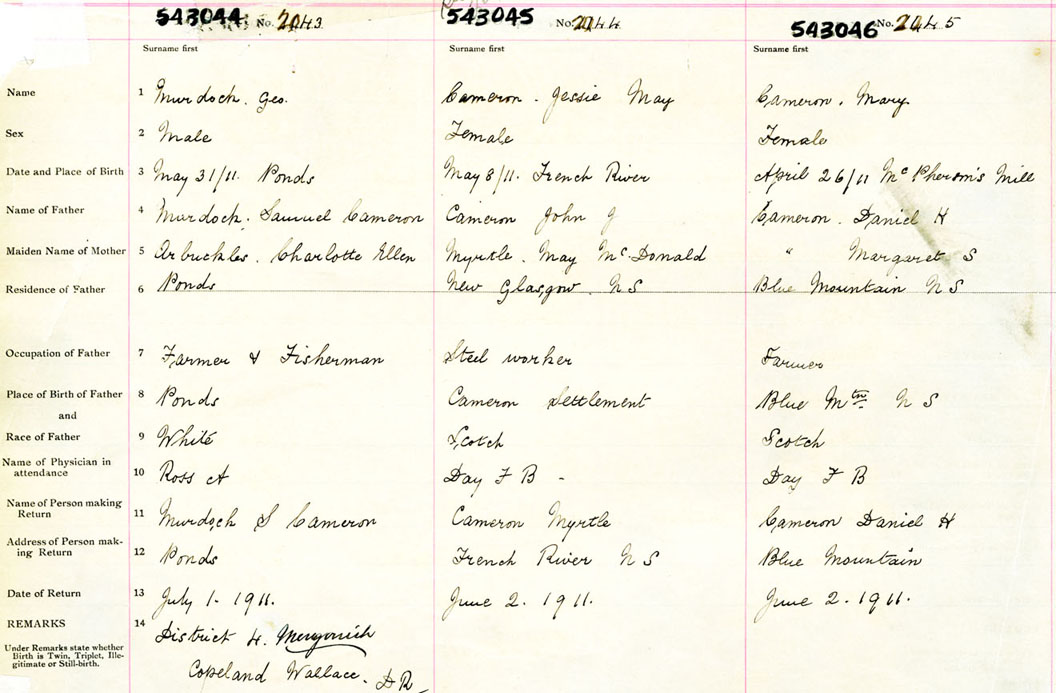 543044 No. 2043 543045 No. 2044 543046 No. 2045
Surname first Surname first Surname first
Name 1 Murdock. Geo. Cameron. Jessie May Cameron. Mary
Sex 2 Male Female Female
Date and Place of Birth 3 May 31/11. Ponds May 8/11. French River April 26/11 McPherson's Mill
Name of Father 4 Murdock. Samuel Cameron Cameron John J Cameron. Daniel H
Maiden Name of Mother 5 Arbuckles. Charlotte Ellen Myrtle. May McDonald " Margaret S
Residence of Father 6 Ponds New Glasgow. N S Blue Mountain N S
Occupation of Father 7 Farmer & Fisherman Steel worker Farmer
Place of Birth of Father 8 Ponds Cameron Settlement Blue Mtn N S
and
Race of Father 9 White Scotch Scotch
Name of Physician in
attendance 10 Ross A Day F B - Day F B
Name of Person making
Return 11 Murdoch S Cameron Cameron Myrtle Cameron Daniel H
Address of Person mak-
ing Return 12 Ponds French River N S Blue Mountain
Date of Return 13 July 1. 1911. June 2. 1911. June 2. 1911.
REMARKS 14 District 4.
Under Remarks state whether
Birth is Twin, Triplet, Ille-
gitimate or Still-birth.
Copeland Wallace. D R